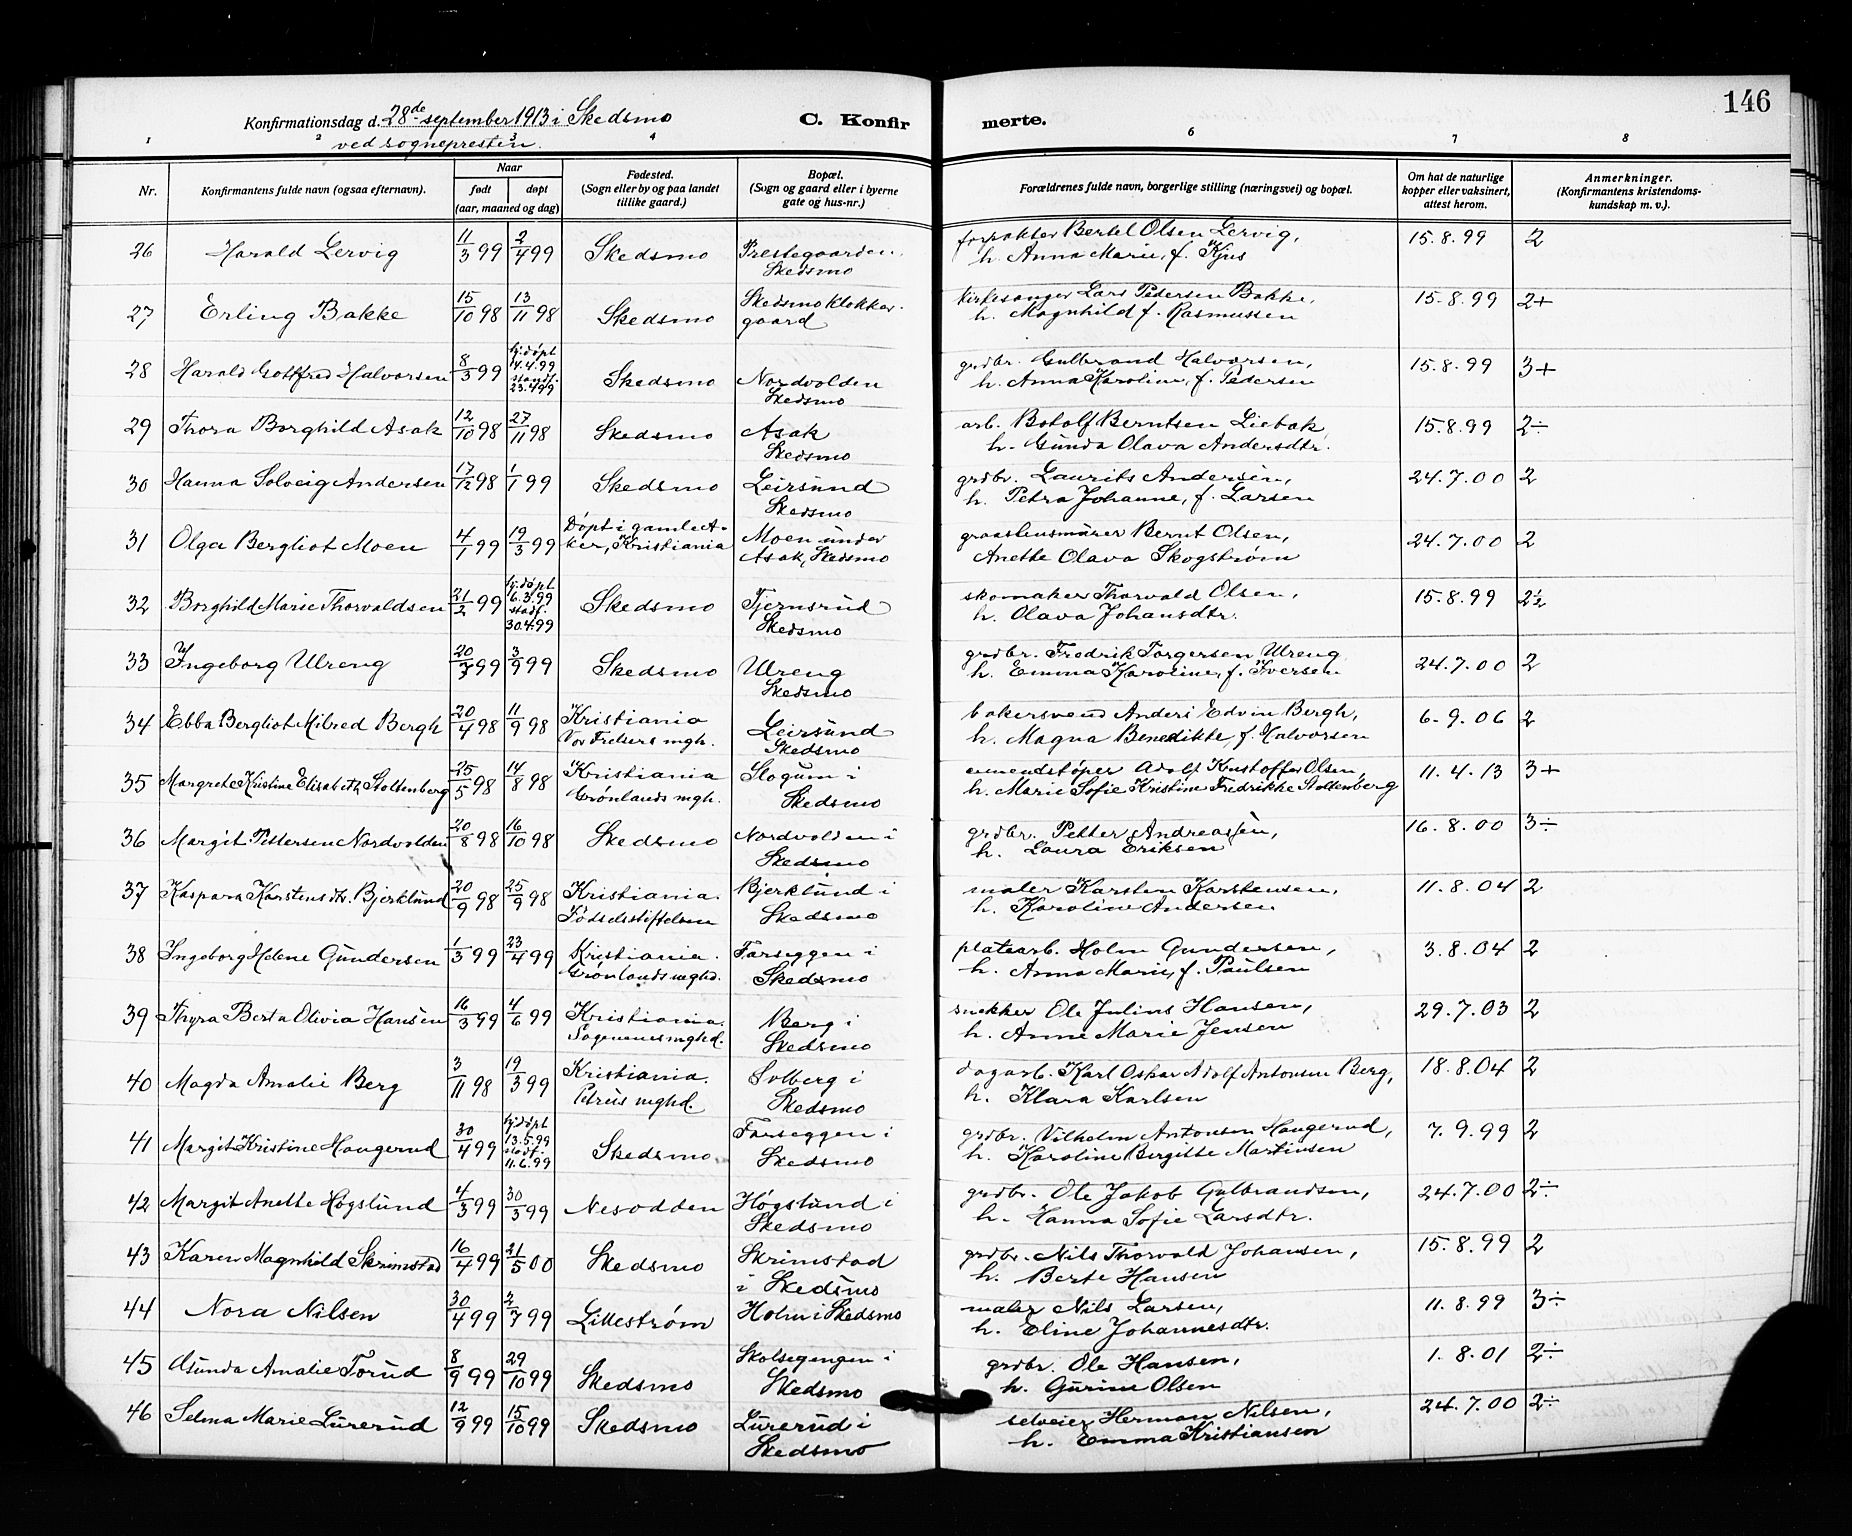 146
Konfirmationsdag d. 28de september 1913 i Skedsmo
ved sognepresten.
C. Konfirmerte.
1 2 3 4 6 7 8
Nr.
Konfirmantens fulde navn (ogsaa efternavn).
Naar
født døpt
(aar, maaned og dag)
Fødested.
(Sogn eller by og paa landet
tillike gaard.)
Bopæl.
(Sogn og gaard eller i byerne
gate og hus-nr.)
Forældrenes fulde navn, borgerlige stilling (næringsvei) og bopæl.
Om hat de naturlige
kopper eller vaksinert,
attest herom.
Anmerkninger.
(Konfirmantens kristendoms-
kundskap m. v.).
26 Harald Lervig 11/3 99 2/4 99 Skedsmo Prestegaarden, forpakter Bertel Olsen Lervig, 15.8.99 2
Skedsmo h. Anna Marie, f. Kjus
27 Erling Bakke 15/10 98 13/11 98 Skedsmo Skedsmo klokker- kirkesanger Lars Pedersen Bakke, 15.8.99 2+
gaard h. Magnhild f. Rasmussen
28 Harald Gottfred Halvorsen 8/3 99 hj.døpt 14.4.99 stadf. 23.4.99 Skedsmo Nordvolden grdbr. Gulbrand Halvorsen, 15.8.99 3+
Skedsmo h. Anna Karoline, f. Pedersen
29 Thora Borghild Asak 12/10 98 27/11 98 Skedsmo Asak arb. Botolf Berntsen Liebak, 15.8.99 2÷
Skedsmo h. Gunda Olava Andersdtr.
30 Hanna Solveig Andersen 17/12 98 1/1 99 Skedsmo Leirsund grdbr. Laurits Andersen, 24.7.00 2
Skedsmo h. Petra Johanne, f. Larsen
31 Olga Bergliot Moen 4/1 99 19/3 99 Døpt i gamle A- Moen under graastensmurer Bernt Olsen, 24.7.00 2
ker, Kristiania Asak, Skedsmo Anette Olava Skogstrøm
32 Borghild Marie Thorvaldsen 21/2 99 hj.døpt 6.3.99 stadf. 30.4.99 Skedsmo Tjernsrud skomaker Thorvald Olsen, 15.8.99 2½
Skedsmo h. Olava Johansdtr.
33 Ingeborg Ulreng 20/7 99 3/9 99 Skedsmo Ulreng grdbr. Fredrik Torgersen Ulreng 24.7.00 2
Skedsmo h. Emma Karoline, f. Iversen
34 Ebba Bergliot Milred Bergh 20/4 98 11/9 98 Kristiania Leirsund bakersvend Anders Edvin Bergh, 6.9.06 2
Vor Frelsers mgh. Skedsmo h. Magna Benedikte, f. Halvorsen
35 Margrete Kristine Elisabeth Stoltenberg 25/5 98 14/8 98 Kristiania Slogum i cementstøper Adolf Kristoffer Olsen, 11.4.13 3+
Grønlands mgh. Skedsmo h. Marie Sofie Kristine Fredrikke Stoltenberg
36 Margit Pettersen Nordvolden 20/8 98 16/10 98 Skedsmo Nordvolden i grdbr. Petter Andreassen, 16.8.00 3÷
Skedsmo h. Laura Eriksen
37 Kaspara Karstensdtr. Bjerklund 20/9 98 25/9 98 Kristiania. Bjerklund i maler Karsten Karstensen, 11.8.04 2
Fødselsstiftelsen Skedsmo h. Karoline Andersen
38 Ingeborg Helene Gundersen 1/3 99 23/4 99 Kristiania. Farseggen i platearb. Holm Gundersen, 3.8.04 2
Grønlands mghd. Skedsmo h. Anna Marie, f. Paulsen
39 Thyra Berta Olivia Hansen 16/3 99 4/6 99 Kristiania. Berg i snekker Ole Julius Hansen, 29.7.03 2
Sagenes mghd. Skedsmo h. Anne Marie Jensen
40 Magda Amalie Berg 3/11 98 19/3 99 Kristiania. Solberg i dagarb. Karl Oskar Adolf Antonsen Berg, 18.8.04 2
Petrus mghd. Skedsmo h. Klara Karlsen
41 Margit Kristine Haugerud 30/4 99 hj.døpt 13.5.99 stadf. 11.6.99 Skedsmo Farseggen i grdbr. Vilhelm Antonsen Haugerud, 7.9.99 2
Skedsmo h. Karoline Birgitte Martinsen
42 Margit Anette Høgslund 4/3 99 30/3 99 Nesodden Høgslund i grdbr. Ole Jakob Gulbrandsen, 24.7.00 2÷
Skedsmo h. Hanna Sofie Larsdtr.
43 Karen Magnhild Skrimstad 16/4 99 21/5 00 Skedsmo Skrimstad grdbr. Nils Thorvald Johansen, 15.8.99 2
i Skedsmo h. Berte Hansen
44 Nora Nilsen 30/4 99 2/7 99 Lillestrøm Holm i Skedsmo maler Nils Larsen, 11.8.99 3÷
h. Eline Johannesdtr.
45 Asunda Amalie Torud 8/9 99 29/10 99 Skedsmo Skolsegengen i grdbr. Ole Hansen, 1.8.01 2÷
Skedsmo h. Gurine Olsen
46 Selma Marie Lurerud 12/9 99 15/10 99 Skedsmo Lurerud i selveier Herman Nilsen, 24.7.00 2÷
Skedsmo h. Emma Kristiansen